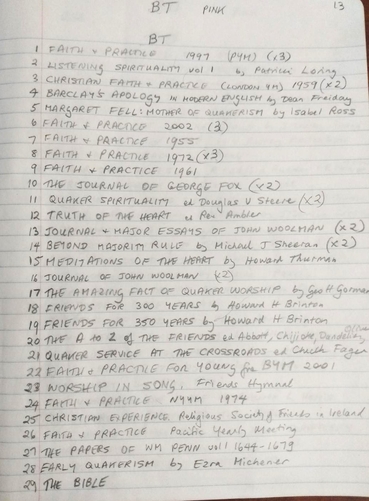 BT PINK 13
BT
1 FAITH + PRACTICE 1997 (PYM) (x3)
2 LISTENING SPIRITUALITY vol 1 by Patricia Loring
3 CHRISTIAN FAITH + PRACTICE (LONDON YM) 1959 (x2)
4 BARCLAY'S APOLOGY IN MODERN ENGLISH by Dean Freiday
5 MARGARET FELL: MOTHER OF QUAKERISM by Isabel Ross
6 FAITH + PRACTICE 2002 (3)
7 FAITH + PRACTICE 1955
8 FAITH + PRACTICE 1972 (x3)
9 FAITH + PRACTICE 1961
10 THE JOURNAL OF GEORGE FOX (x2)
11 QUAKER SPIRITUALITY ed Douglas V Steere (x2)
12 TRUTH OF THE HEART ed Rex Ambler
13 JOURNAL + MAJOR ESSAYS OF JOHN WOOLMAN (x2)
14 BEYOND MAJORITY RULE by Michael J Sheeran (x2)
15 MEDITATIONS OF THE HEART by Howard Thurman
16 JOURNAL OF JOHN WOOLMAN (x2)
17 THE AMAZING FACT OF QUAKER WORSHIP by Geo H Gorman
18 FRIENDS FOR 300 YEARS by Howard H Brinton
19 FRIENDS FOR 350 YEARS by Howard H Brinton
20 THE A to Z OF THE FRIENDS ed Abbott, Chijioke, Dandelion
21 QUAKER SERVICE AT THE CROSSROADS ed Chuck Fager
22 FAITH + PRACTICE FOR YOUNG BYM 2001
23 WORSHIP IN SONG, Friends Hymnal
24 FAITH + PRACTICE NYYM 1974
25 CHRISTIAN EXPERIENCE, Religious Society of Friends in Ireland
26 FAITH + PRACTICE Pacific Yearly Meeting
27 THE PAPERS OF WM PENN vol 1 1644-1679
28 EARLY QUAKERISM by Ezra Michener
29 THE BIBLE